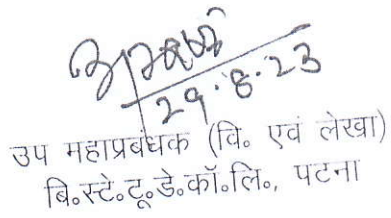 29.8.23
उप महाप्रबंधक (वि. एवं लेखा)
बि.स्टे.टू.डे.कॉ.लि., पटना